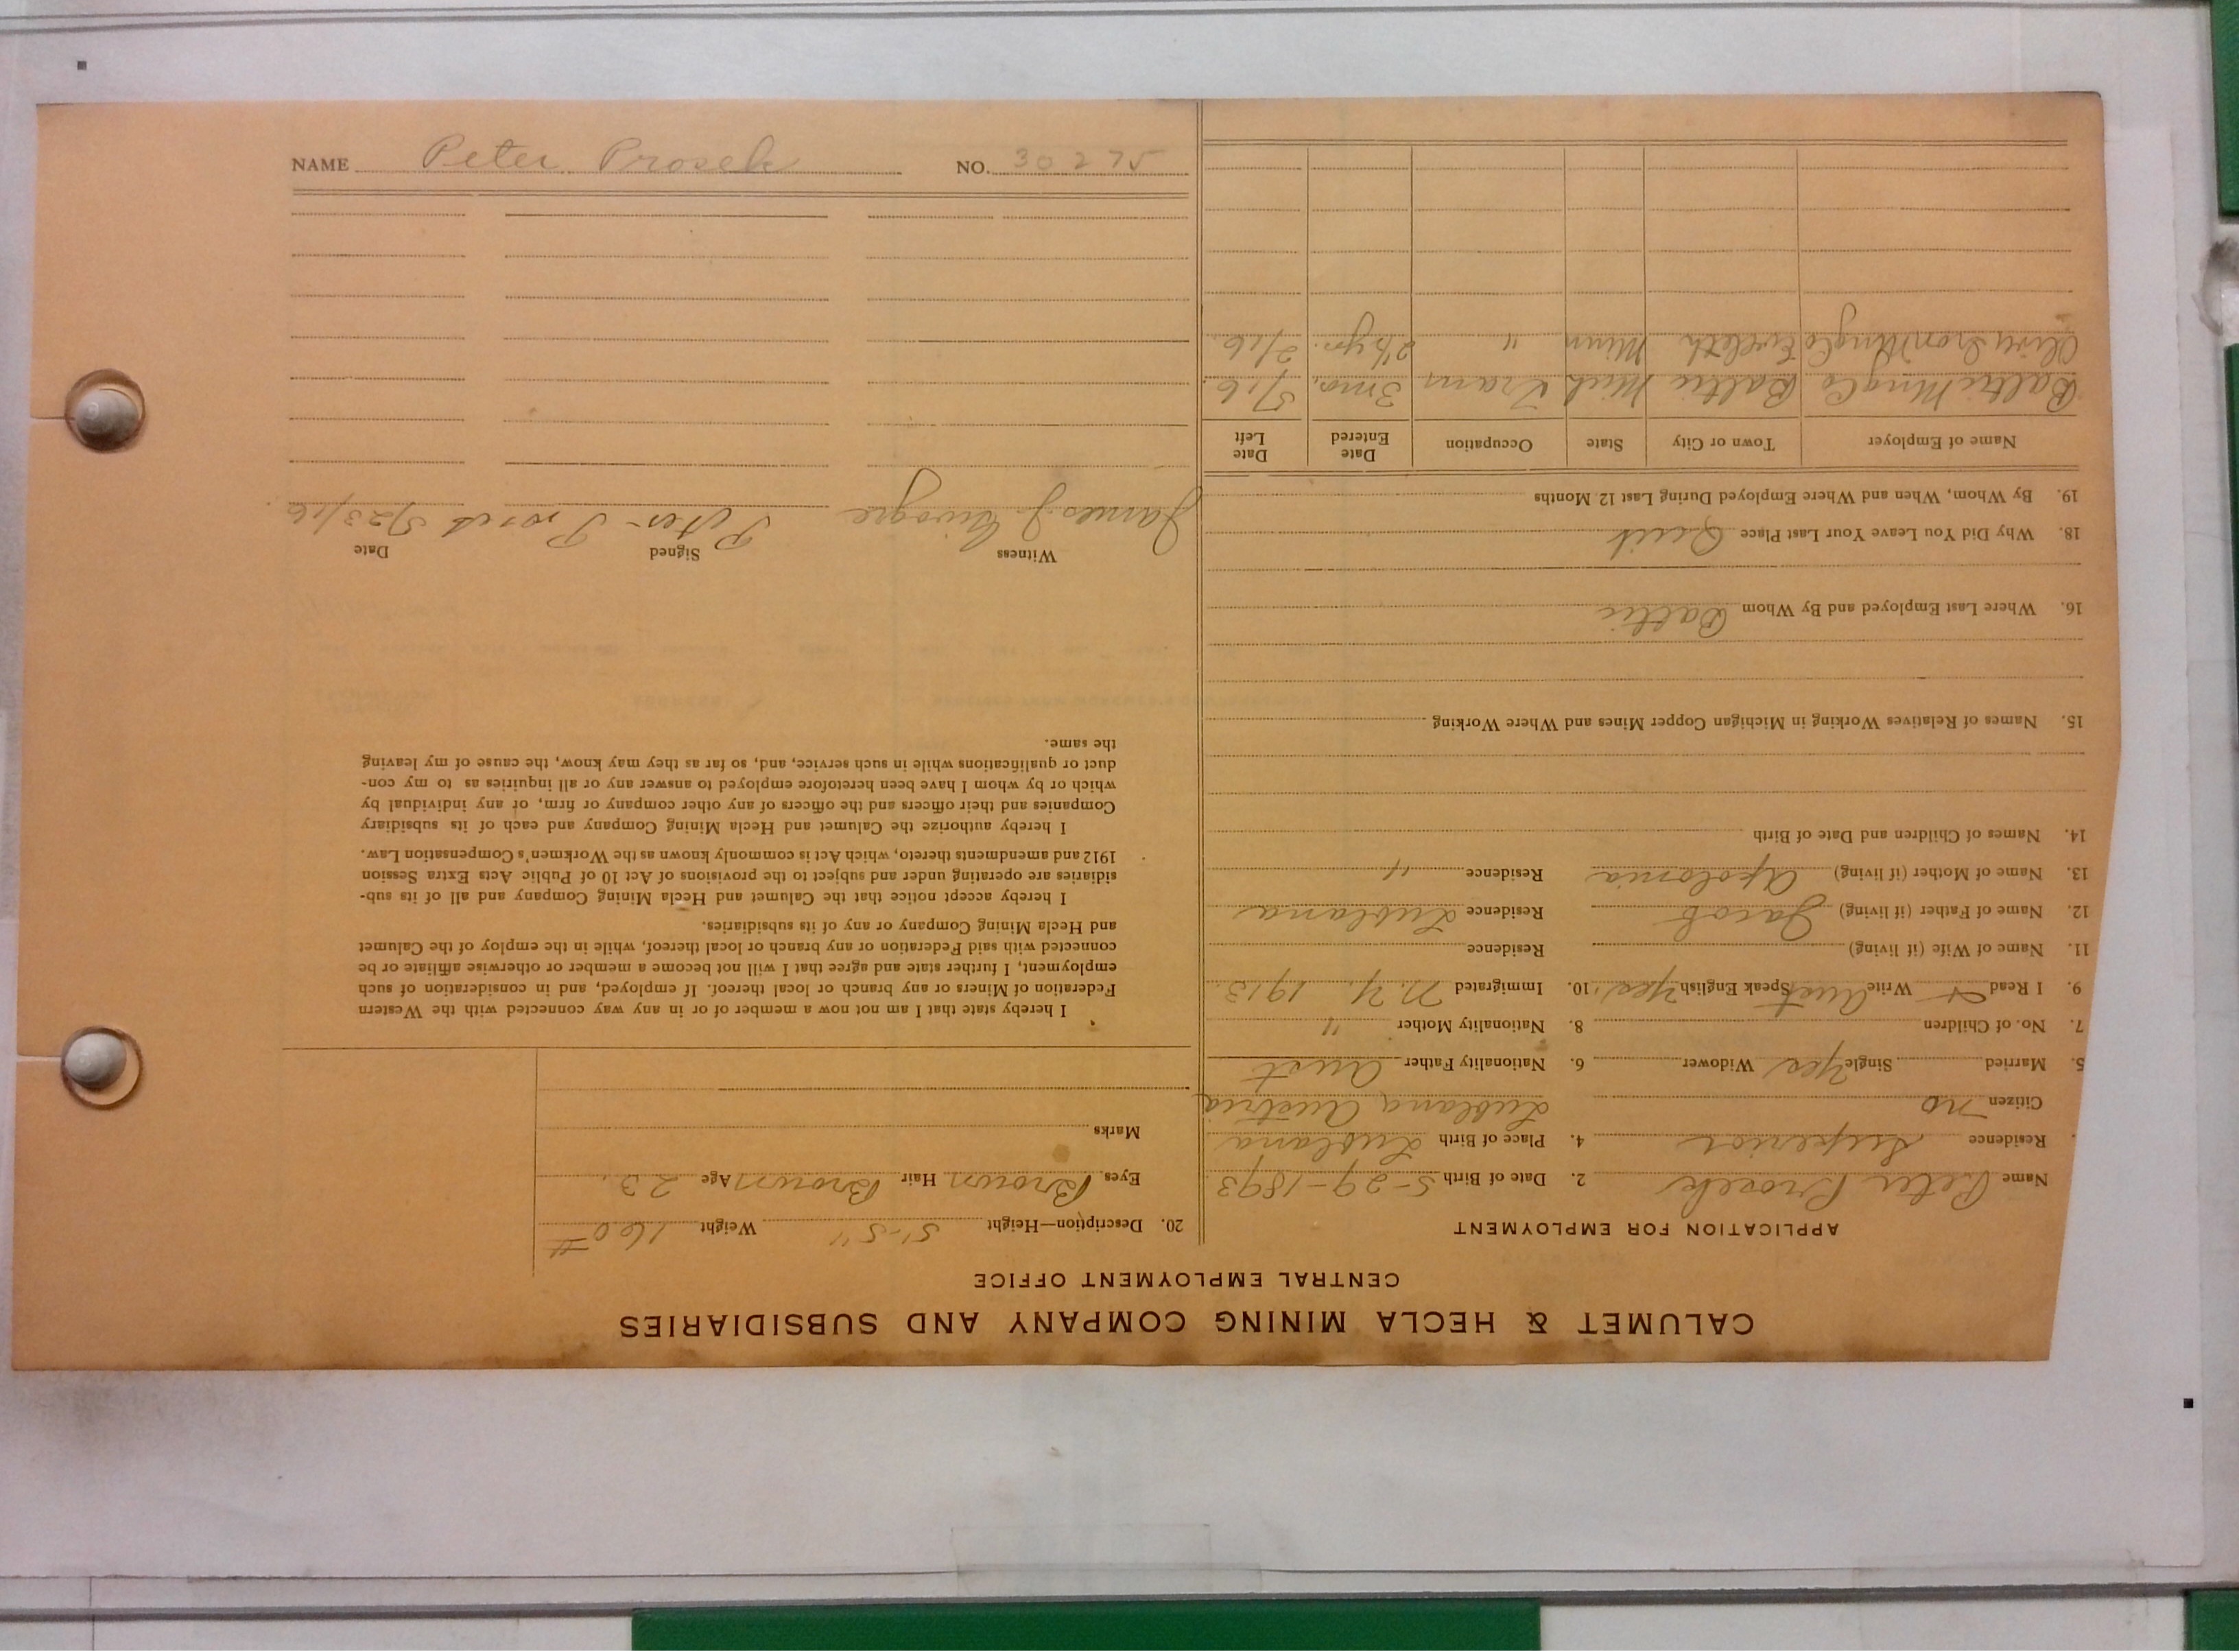 NAME Peter Prosek NO. 30275
CALUMET & HECLA MINING COMPANY AND SUBSIDIARIES
CENTRAL EMPLOYMENT OFFICE
APPLICATION FOR EMPLOYMENT
Name Peter Prosek 2. Date of Birth 5-29-1893
Residence Superior 4. Place of Birth Lublana
Citizen no Lublana Austria
5. Married Single yes Widower 6. Nationality Father Aust
7. No. of Children 8. Nationality Mother "
9. I Read + Write Aust Speak English yes 10. Immigrated N.Y. 1913
11. Name of Wife (if living) Residence
12. Name of Father (if living) Jacob Residence Lublana
13. Name of Mother (if living) Apolonia Residence "
14. Names of Children and Date of Birth
15. Names of Relatives Working in Michigan Copper Mines and Where Working
16. Where Last Employed and By Whom Baltic
18. Why Did You Leave Your Last Place Quit
19. By Whom, When and Where Employed During Last 12 Months
Name of Employer Town or City State Occupation Date Entered Date Left
Baltic Mng Co Baltic Mich Tram 3 mo. 5/16
Oliver Iron Mng Co Eveleth Minn " 2½ yr. 2/16
20. Description—Height 5'-5" Weight 160#
Eyes Brown Hair Brown Age 23
Marks
I hereby state that I am not now a member of or in any way connected with the Western
Federation of Miners or any branch or local thereof. If employed, and in consideration of such
employment, I further state and agree that I will not become a member or otherwise affiliate or be
connected with said Federation or any branch or local thereof, while in the employ of the Calumet
and Hecla Mining Company or any of its subsidiaries.
I hereby accept notice that the Calumet and Hecla Mining Company and all of its sub-
sidiaries are operating under and subject to the provisions of Act 10 of Public Acts Extra Session
1912 and amendments thereto, which Act is commonly known as the Workmen's Compensation Law.
I hereby authorize the Calumet and Hecla Mining Company and each of its subsidiary
Companies and their officers and the officers of any other company or firm, or any individual by
which or by whom I have been heretofore employed to answer any or all inquiries as to my con-
duct or qualifications while in such service, and, so far as they may know, the cause of my leaving
the same.
Witness Signed Date
James J. Peter Prosek 5/23/16